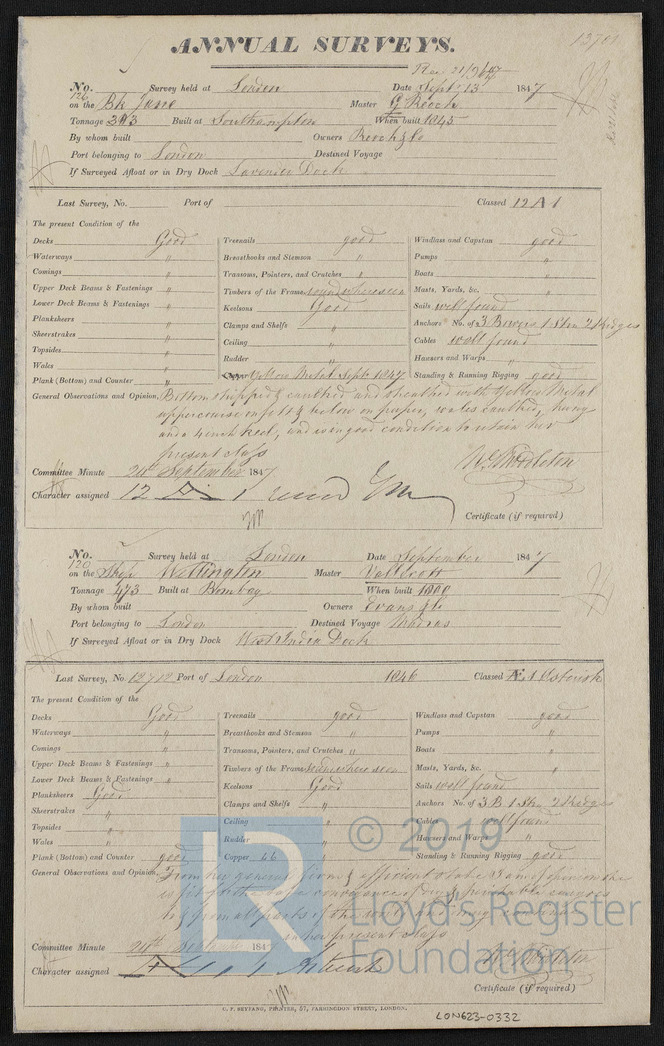 13701
ANNUAL SURVEYS.
Rec. 21/9/47
No. 126 Survey held at London Date Sept. 13 1847
on the Bk Jane Master G Rooch
Tonnage 393 Built at Southampton When built 1845
By whom built Owners Rooch & Co
Port belonging to London Destined Voyage
If Surveyed Afloat or in Dry Dock Lavender Dock
Last Survey, No. Port of Classed 12 A 1
The present Condition of the
Decks Good Treenails good Windlass and Capstan good
Waterways " Breasthooks and Stemson " Pumps "
Comings " Transoms, Pointers, and Crutches " Boats "
Upper Deck Beams & Fastenings " Timbers of the Frame sound where seen Masts, Yards, &c. "
Lower Deck Beams & Fastenings " Keelsons Good Sails well found
Planksheers " Clamps and Shelfs " Anchors No. of 3 Bowers 1 Stm 2 Kedges
Sheerstrakes " Ceiling " Cables well found
Topsides " Rudder " Hawsers and Warps "
Wales " Copper Yellow Metal Sept. 1847 Standing & Running Rigging good
Plank (Bottom) and Counter "
General Observations and Opinion, Bottom stripped & caulked and sheathed with Yellow Metal
uppercourse on felt & below on paper, wales caulked,
and a 4 inch keel, and is in good condition to retain her
present class
Committee Minute 24th September 1847
Character assigned 12 A 1
Certificate (if required)
No. 120 Survey held at London Date September 1847
on the Ship Wellington Master
Tonnage 473 Built at Bombay When built 1800
By whom built Owners Evans & Co
Port belonging to London Destined Voyage Madras
If Surveyed Afloat or in Dry Dock West India Dock
Last Survey, No. 12712 Port of London 1846 Classed Æ 1 Asterisk
The present Condition of the
Decks Good Treenails good Windlass and Capstan good
Waterways " Breasthooks and Stemson " Pumps "
Comings " Transoms, Pointers, and Crutches " Boats "
Upper Deck Beams & Fastenings " Timbers of the Frame sound where seen Masts, Yards, &c. "
Lower Deck Beams & Fastenings " Keelsons Good Sails well found
Planksheers Good Clamps and Shelfs " Anchors No. of 3 B 1 Stm 2 Kedges
Sheerstrakes " Ceiling " Cables well found
Topsides " Rudder " Hawsers and Warps "
Wales " Copper 46 Standing & Running Rigging good
Plank (Bottom) and Counter good
General Observations and Opinion, From her general I am of opinion she
is fit for the safe conveyance of dry & perishable cargoes
to & from all parts of the world
in her present class
Committee Minute 24th September 1847
Character assigned Æ 1 Asterisk
Certificate (if required)
C. F. SEYFANG, PRINTER, 57, FARRINGDON STREET, LONDON.
LON623-0332
© 2019
Lloyd's Register
Foundation
LR